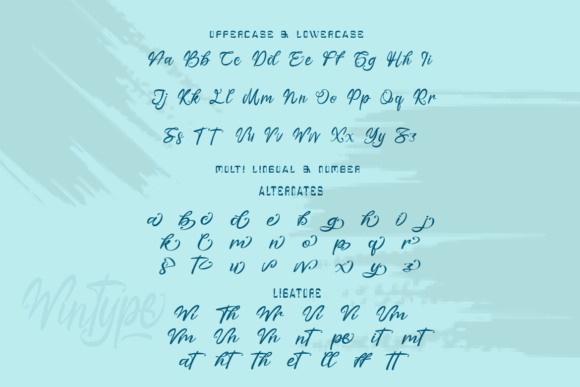 UPPERCASE & LOWERCASE
Aa Bb Cc Dd Ee Ff Gg Hh Ii
Jj Kk Ll Mm Nn Oo Pp Qq Rr
Ss Tt Uu Vv Ww Xx Yy Zz
MULTI LINGUAL & NUMBER
ALTERNATES
a b c d e f g h i j
k l m n o p q r
s t u v w x y z
Wintype
LIGATURE
Wi Th Wr Ui Vi Um
Vm Un Vn nt pe it mt
at ht th et ll ff tt